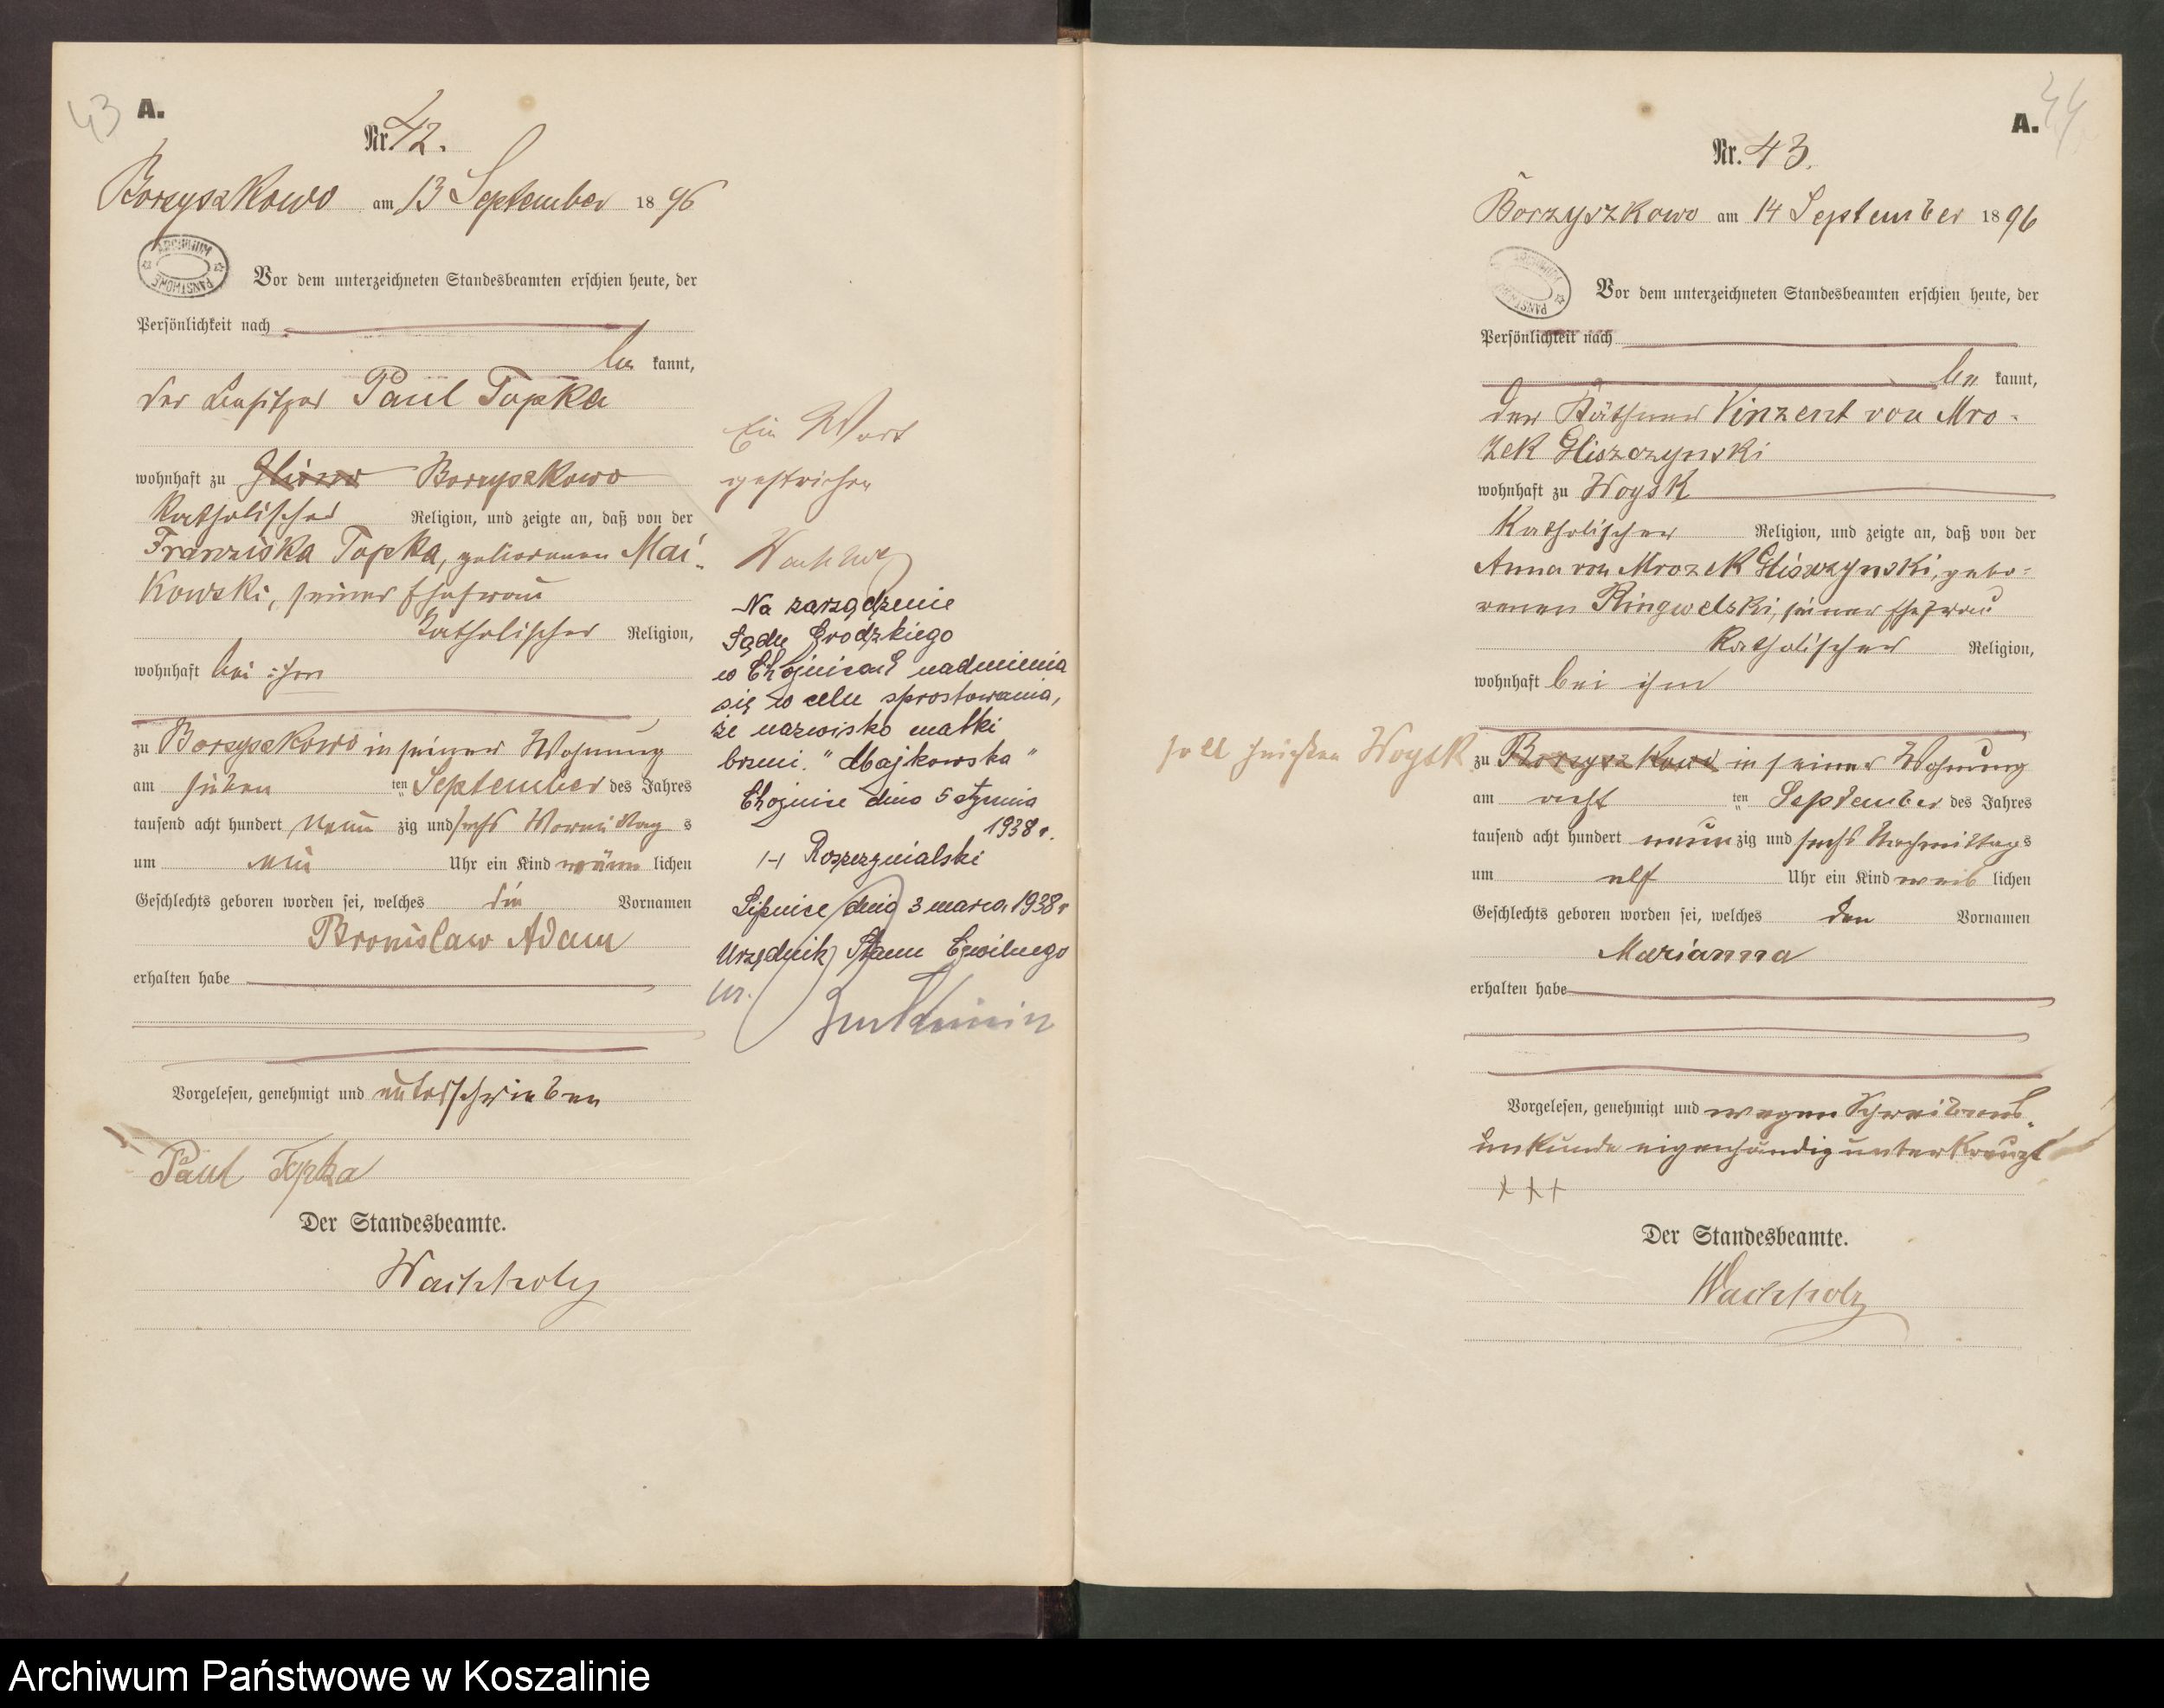 43
A.
Nr. 42.
Borzyszkowo am 13 September 1896
ARCHIWUM PAŃSTWOWE
Vor dem unterzeichneten Standesbeamten erschien heute, der
Persönlichkeit nach
be kannt,
der Besitzer Paul Topka
wohnhaft zu Glisno Borzyszkowo
katholischer Religion, und zeigte an, daß von der
Franziska Topka, geborenen Mai-
kowski, seiner Ehefrau
katholischer Religion,
wohnhaft bei ihm
zu Borzyszkowo in seiner Wohnung
am sieben ten September des Jahres
tausend acht hundert neun zig und sechs Vormittag s
um neun Uhr ein Kind männ lichen
Geschlechts geboren worden sei, welches die Vornamen
Bronislaw Adam
erhalten habe
Vorgelesen, genehmigt und unterschrieben
Paul Topka
Der Standesbeamte.
Wachholz
Ein Wort
gestrichen
Wachholz
Na zarządzenie
Sądu Grodzkiego
w Chojnicach nadmienia
się w celu sprostowania,
że nazwisko matki
brzmi "Majkowska"
Chojnice dnia 5 stycznia
1938 r.
Lipnice dnia 3 marca 1938 r
Urzędnik Stanu Cywilnego
44
A.
Nr. 43.
Borzyszkowo am 14 September 1896
ARCHIWUM PAŃSTWOWE
Vor dem unterzeichneten Standesbeamten erschien heute, der
Persönlichkeit nach
be kannt,
der Käthner Vinzent von Mro-
zek Gliszczynski
wohnhaft zu Woysk
katholischer Religion, und zeigte an, daß von der
Anna von Mrozek Gliszczynski, gebo-
renen Ringwelski, seiner Ehefrau
katholischer Religion,
wohnhaft bei ihm
soll heißen Woysk
zu Borzyszkowo in seiner Wohnung
am acht ten September des Jahres
tausend acht hundert neun zig und sechs Nachmittag s
um elf Uhr ein Kind weib lichen
Geschlechts geboren worden sei, welches den Vornamen
Marianna
erhalten habe
Vorgelesen, genehmigt und wegen Schreibens-
unkunde eigenhändig unterkreuzt
+++
Der Standesbeamte.
Wachholz
Archiwum Państwowe w Koszalinie